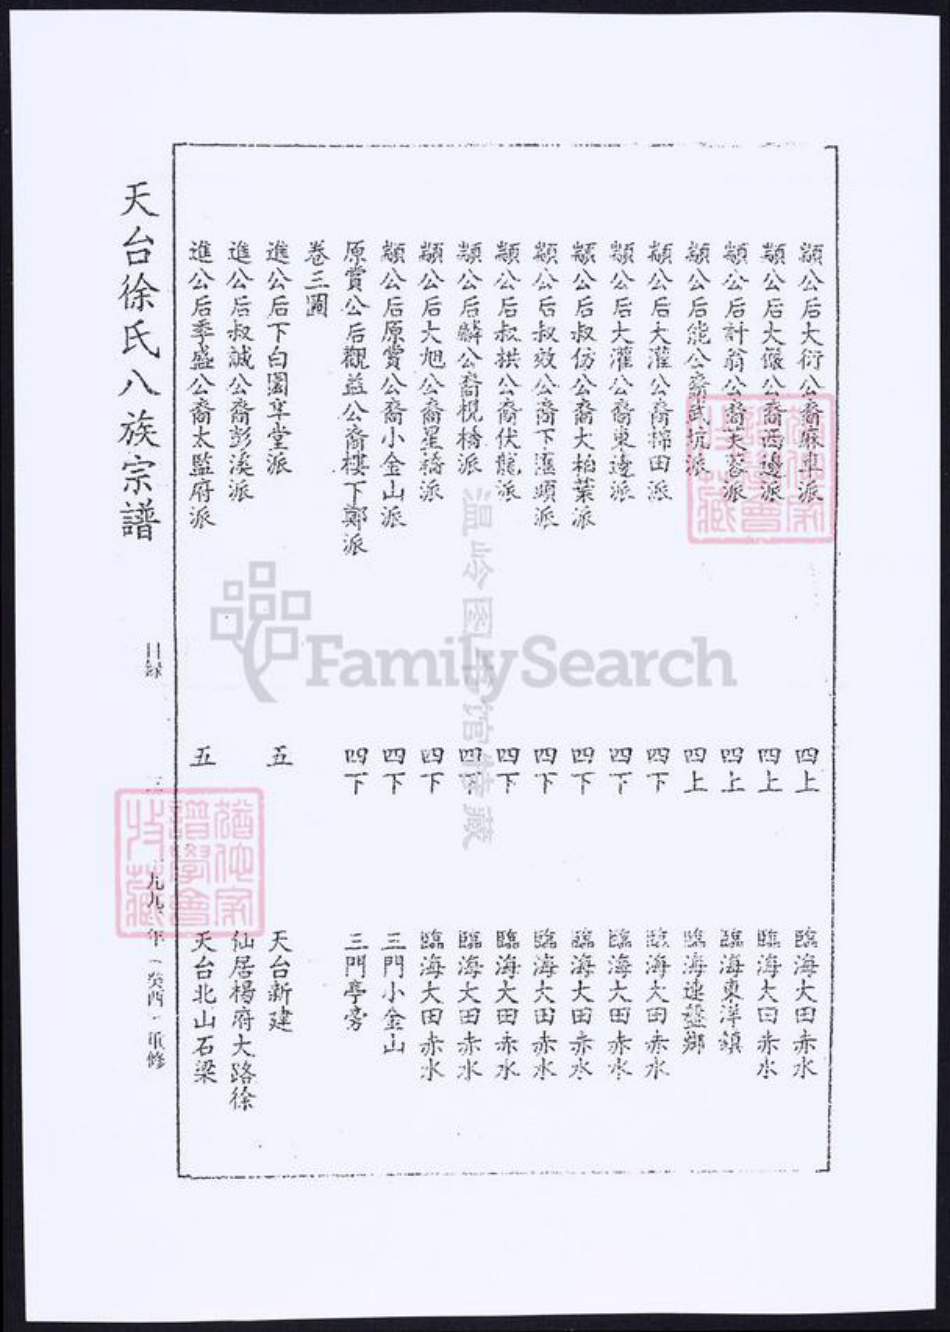 顓公后大衍公裔麻車派 四上 臨海大田赤水
顓公后大儼公裔西邊派 四上 臨海大田赤水
顓公后計翁公裔芙蓉派 四上 臨海東洋鎮
顓公后能公裔武坑派 四上 臨海連盤鄉
顓公后大灌公裔棉田派 四下 臨海大田赤水
顓公后大灌公裔東邊派 四下 臨海大田赤水
顓公后叔仿公裔大柏葉派 四下 臨海大田赤水
顓公后叔效公裔下滙頭派 四下 臨海大田赤水
顓公后叔拱公裔伏龍派 四下 臨海大田赤水
顓公后麟公裔枧橋派 四下 臨海大田赤水
顓公后大旭公裔星橋派 四下 臨海大田赤水
顓公后原賞公裔小金山派 四下 三門小金山
原賞公后觀益公裔樓下鄭派 四下 三門亭旁
卷三圖
進公后下白園草堂派 五 天台新建
進公后叔誠公裔彭溪派 仙居楊府大路徐
進公后季盛公裔太監府派 五 天台北山石梁
天台徐氏八族宗譜
目録
三
一九九 年(癸酉)重修
FamilySearch
温岭图书馆特藏
譜學會
收藏